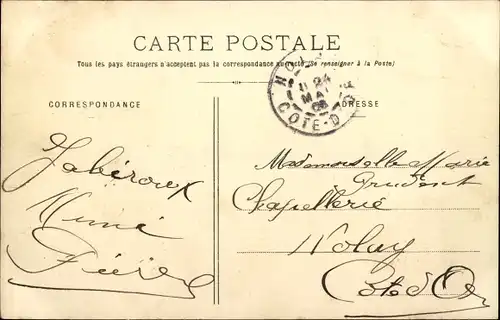 CARTE POSTALE
Tous les pays étrangers n'acceptent pas la correspondance au recto (Se renseigner à la Poste)
CORRESPONDANCE
ADRESSE
24
MAI
COTE-D'OR
Mademoiselle Marie
Prudent
Chapellerie
Nolay
Côte d'Or